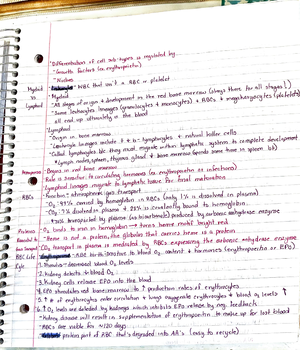 "Differentiation of cell sub types is regulated by
"Growth factors (ex. erythropoietin)
"Native
WBC that isn't a RBC or platelet
Myeloid
vs
Lymphoid
"Myeloid
"All stages of origin & development in the red bone marrow (always there for all stages!)
"Some leukocyte lineages (granulocytes & monocytes) & RBCs & megakaryocytes (platelets)
all end up ultimately in the blood
"Lymphoid
"Origin in bone marrow
"Leukocyte lineages include T & B-lymphocytes & natural killer cells
"Called lymphocytes b/c they must migrate within lymphatic system to complete development
"Lymph nodes, spleen, thymus gland & bone marrow (spends some time in spleen
"Begins in red bone marrow
"Role is sensitive to circulating hormones (ex erythropoietin or infections)
"Lymphoid lineages migrate to lymphatic tissue for final maturation
RBCs
"Function: atmospheric gas transport
"O₂: 99% carried by hemoglobin in RBCs (only 1% is dissolved in plasma)
"CO₂: 7% dissolved in plasma & 23% is reversibly bound to hemoglobin
"70% transported by plasma (as bicarbonate) produced by carbonic anhydrase enzyme
"O₂ binds to iron in hemoglobin → turns heme metal bright red
"Heme is not a protein, the globulin that carries heme is a protein
"CO₂ transport in plasma is mediated by RBCs expressing the carbonic anhydrase enzyme
RBC Life
Cycle
RBC birth: (sensitive to blood O₂ content & hormones (erythropoietin or EPO)
1. Stimulus: decreased blood O₂ levels
2. Kidney detects ↓ blood O₂
3. Kidney cells release EPO into the blood
4. EPO stimulates red bone marrow to ↑ production rates of erythrocytes
5. ↑ # of erythrocytes enter circulation & lungs oxygenate erythrocytes & blood O₂ levels ↑
6. ↑ O₂ levels are detected by kidneys which inhibits EPO release by neg. feedback
"Kidney disease will result in supplementation of erythropoietin to make up for lost blood
"RBCs are viable for ~120 days
protein part of RBC that's degraded into AA's (easy to recycle)